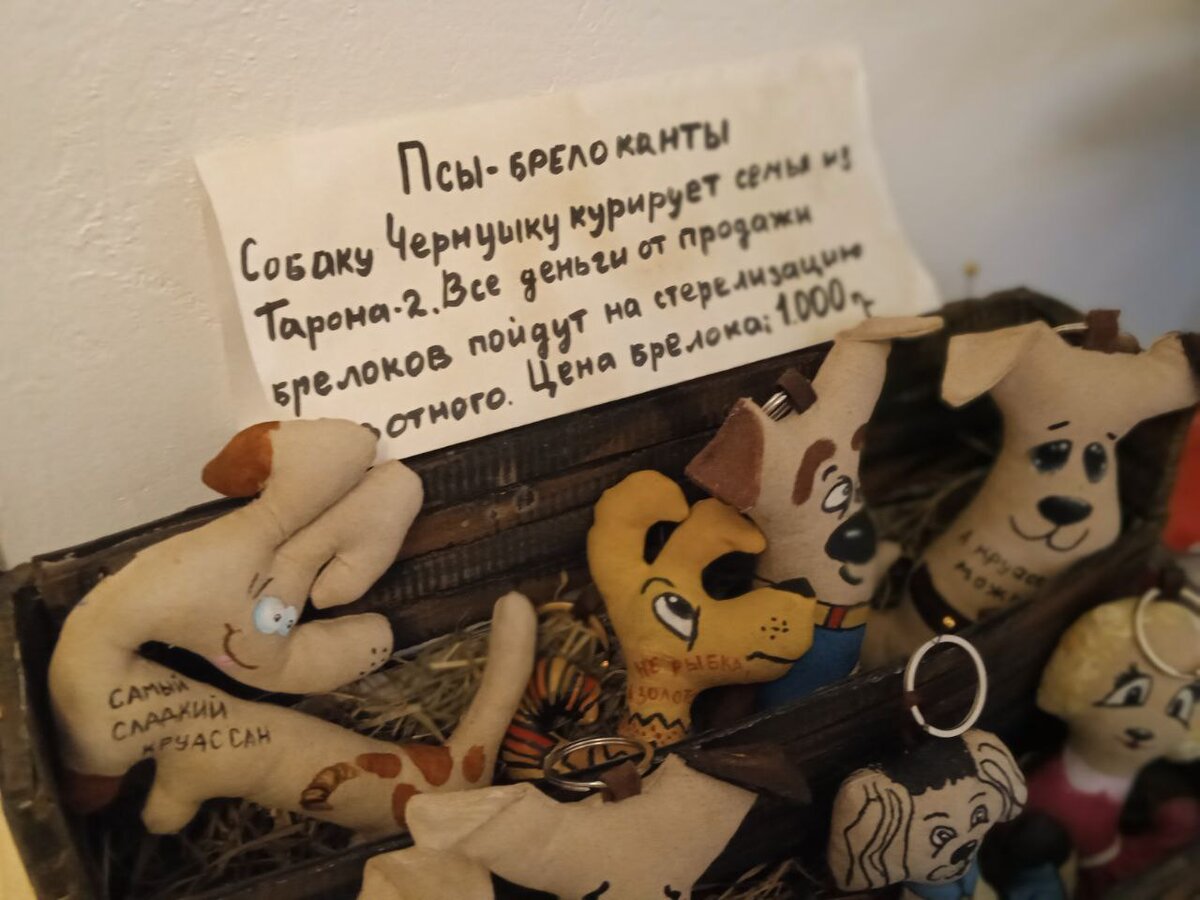 Псы-брелоканты
Собаку Чернушку курирует семья из
Тарона-2. Все деньги от продажи
брелоков пойдут на стерелизацию
вотного. Цена брелока: 1.000
САМЫЙ
СЛАДКИЙ
КРУАССАН
НЕ РЫБКА,
А ЗОЛОТ
А КРУАС
МОЖ